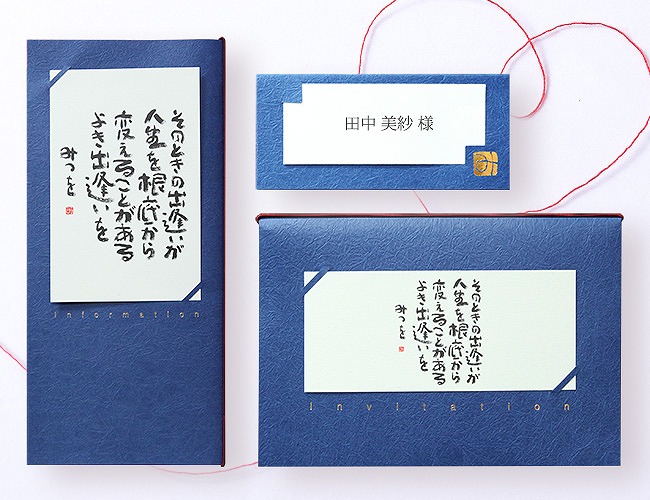 そのときの出逢いが
人生を根底から
変えることがある
よき出逢いを
みつを
information
田中 美紗 様
み
そのときの出逢いが
人生を根底から
変えることがある
よき出逢いを
みつを
invitation